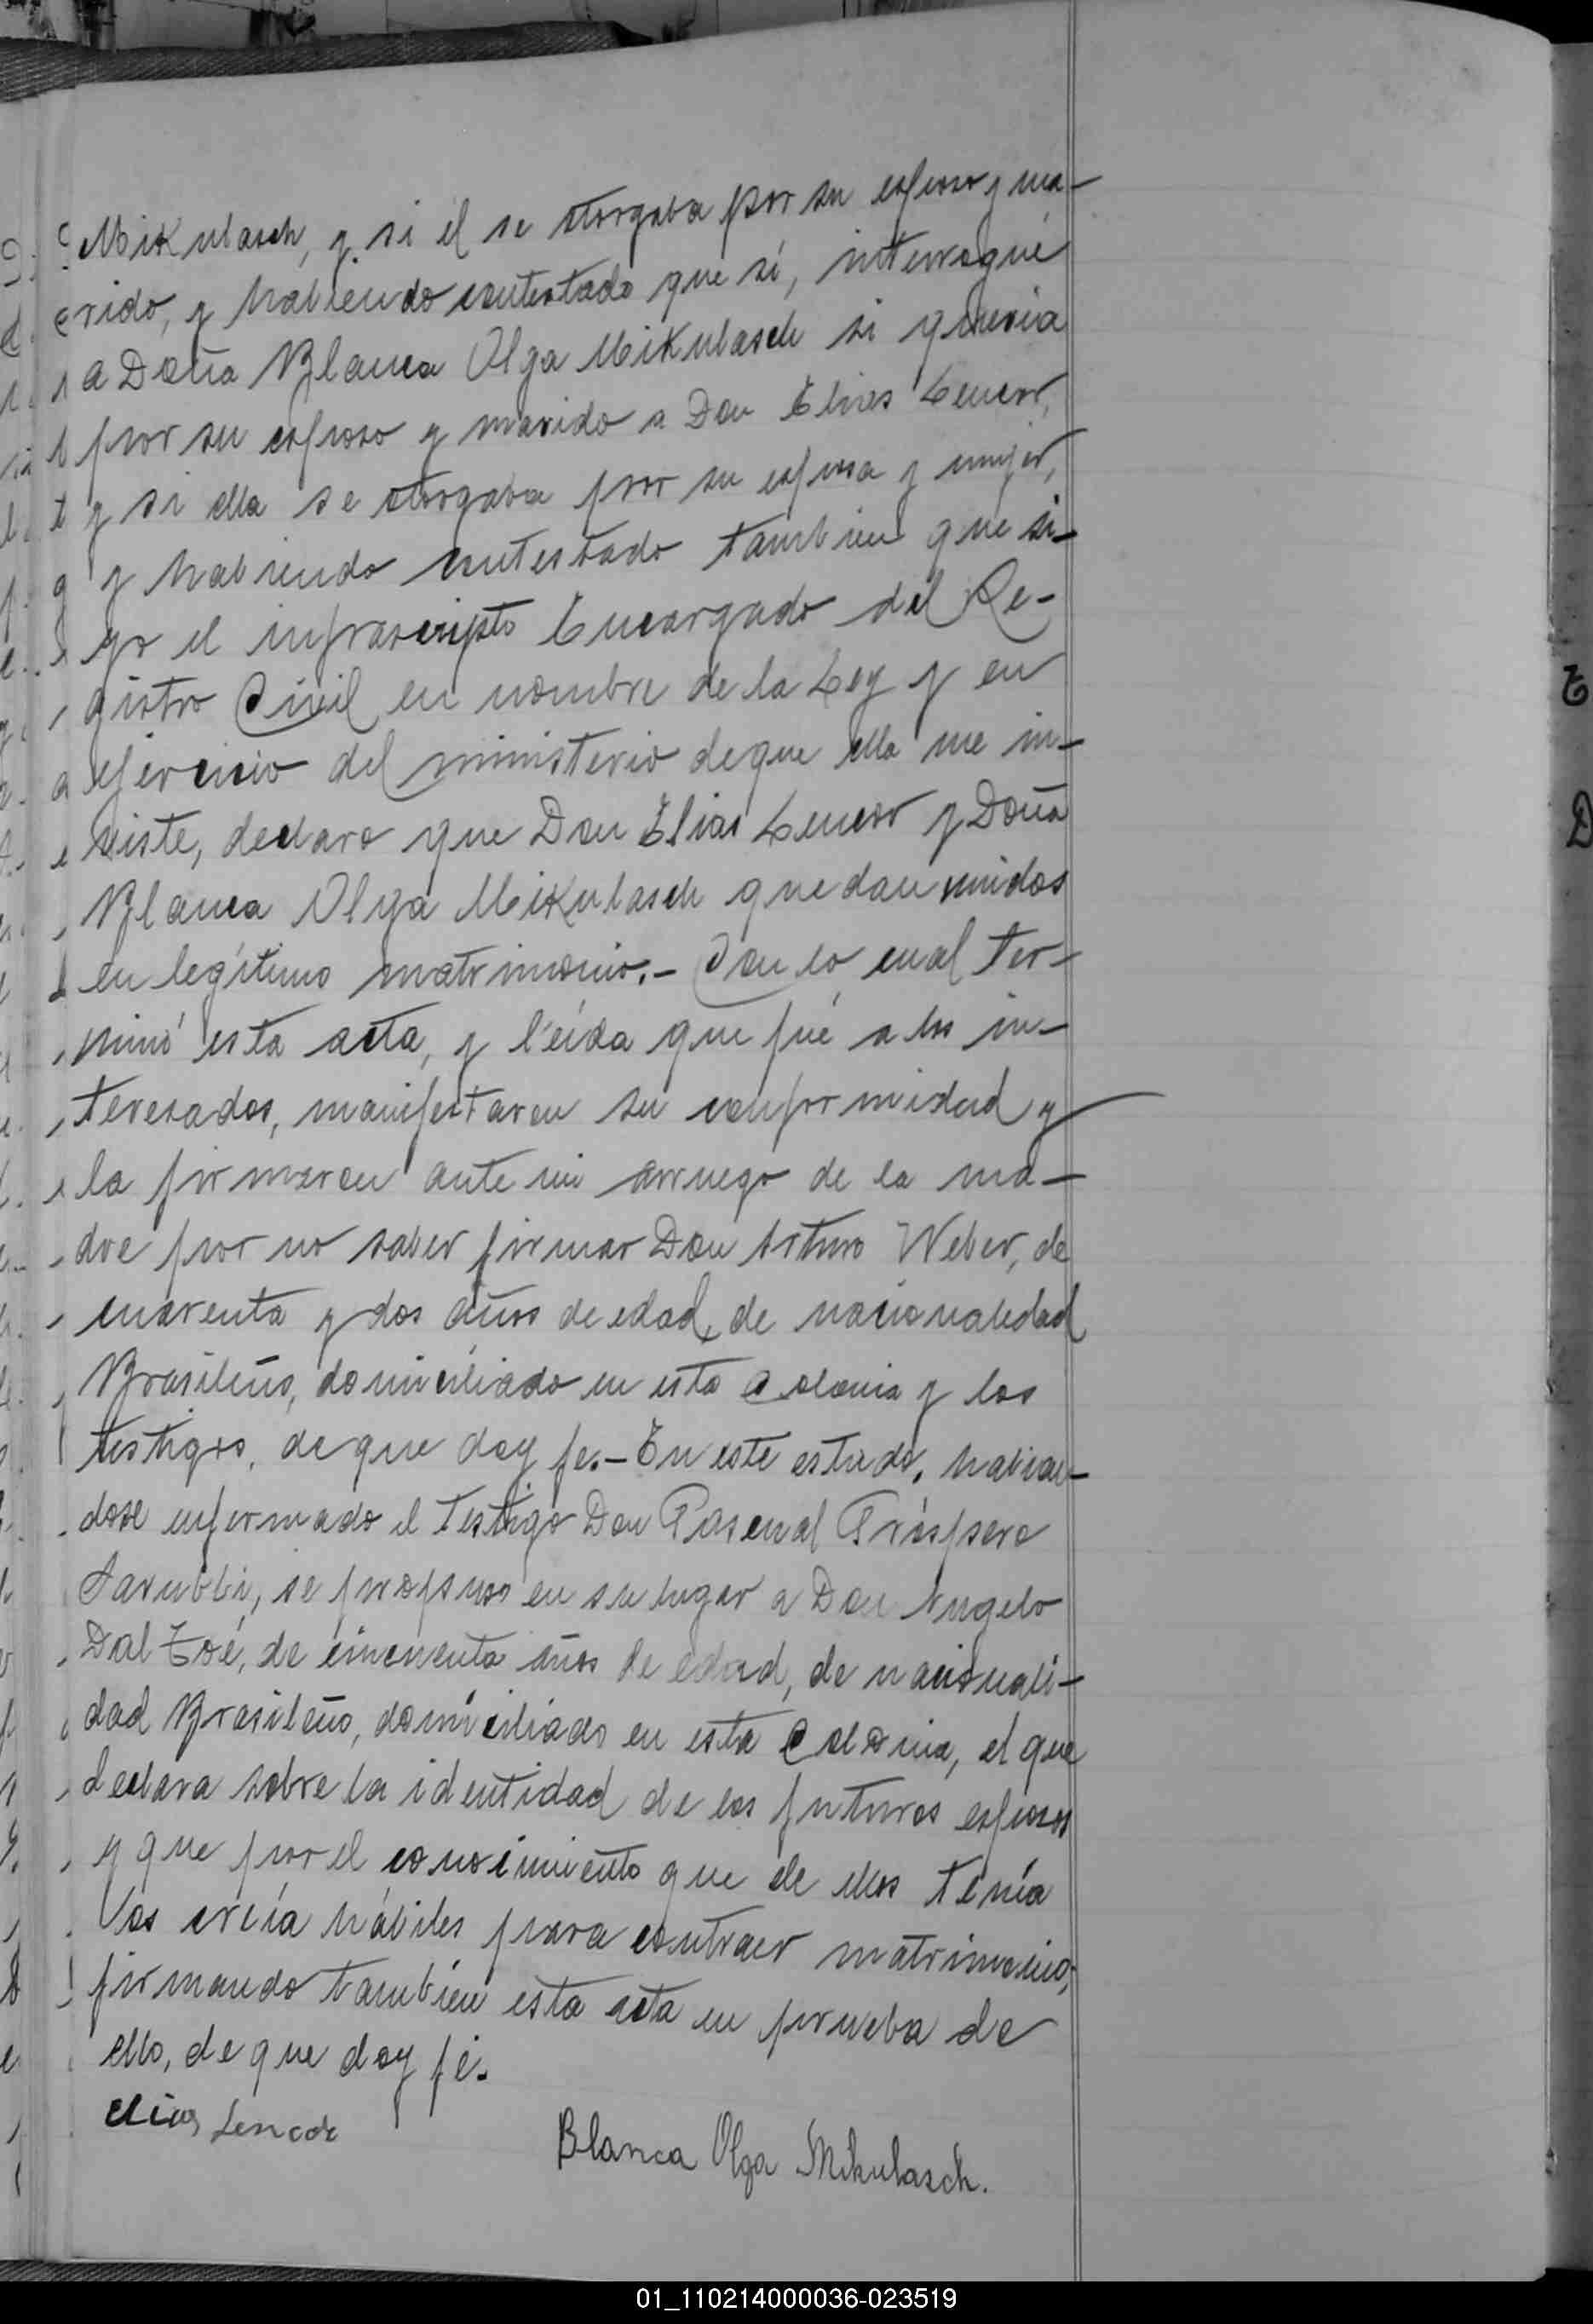 Mikulasch, y si él se otorgaba por su esposo y ma-
rido, y habiendo contestado que sí, interrogué
a Doña Blanca Olga Mikulasch si quería
por su esposo y marido a Don Elias Lencor,
y si ella se otorgaba por su esposa y mujer,
y habiendo contestado tambien que si-
yo el infrascripto Encargado del Re-
gistro Civil en nombre de la Ley y en
ejercicio del ministerio de que ella me in-
viste, declaro que Don Elias Lencor y Doña
Blanca Olga Mikulasch quedan unidos
en legítimo matrimonio.- Con lo cual ter-
minó esta acta, y leída que fué a los in-
teresados, manifestaron su conformidad y
la firmaron ante mi arruego de la ma-
dre por no saber firmar Don Arturo Weber, de
cuarenta y dos años de edad, de nacionalidad
Brasileño, domiciliado en esta Colonia y los
testigos, de que doy fe.- En este estado, habien-
dose enfermado el testigo Don Pascual Próspero
Sarubbi, se propuso en su lugar a Don Angelo
Dal Zoé, de cincuenta años de edad, de nacionali-
dad Brasileño, domiciliado en esta Colonia, el que
declara sobre la identidad de los futuros esposos
y que por el conocimiento que de ellos tenía
los creía hábiles para contraer matrimonio,
firmando tambien esta acta en prueba de
ello, de que doy fé.
Elias Lencor
Blanca Olga Mikulasch.
01_110214000036-023519